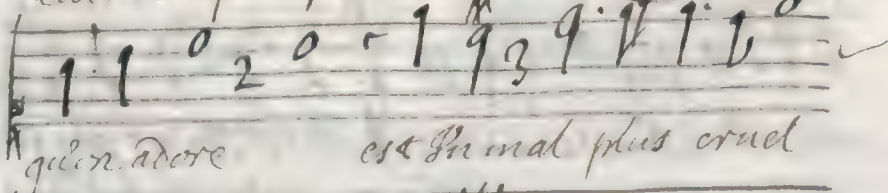 2 3
qu'on adore est un mal plus cruel